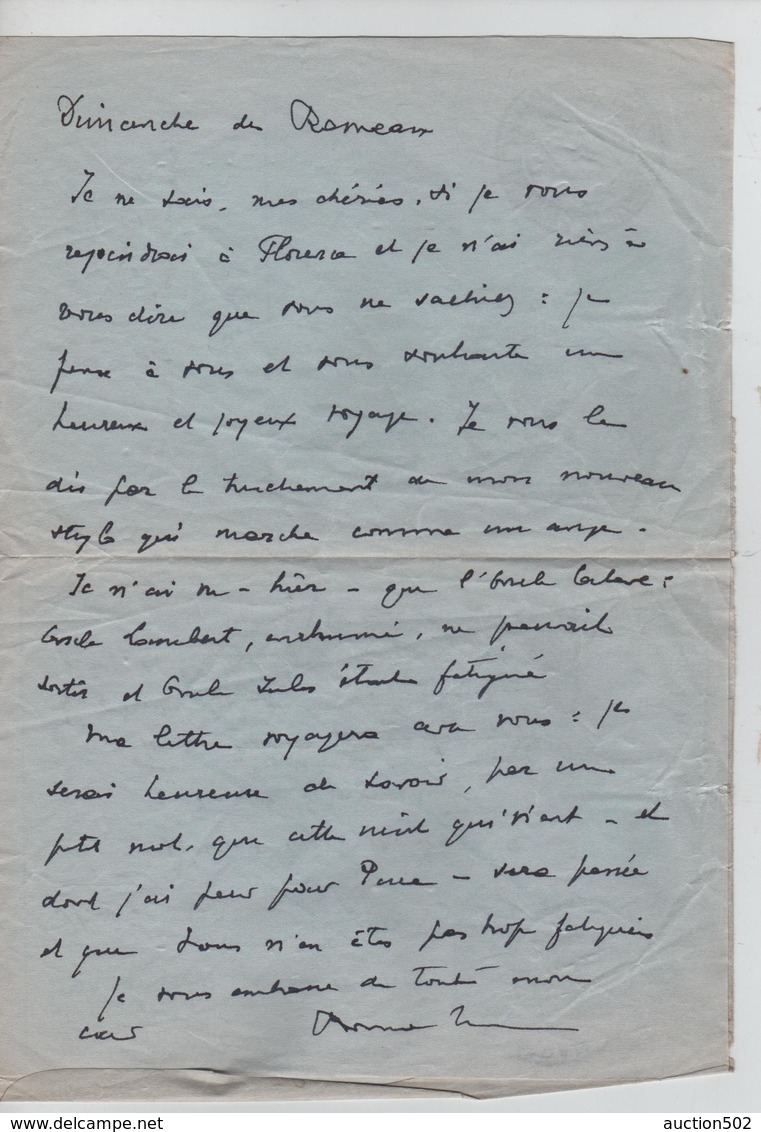 Dimanche des Rameaux
Je ne sais, mes chéries, si je vous
rejoindrai à Florence et je n'ai rien à
vous dire que vous ne sachiez : je
pense à vous et vous souhaite un
heureux et joyeux voyage. Je vous le
dis par le truchement de mon nouveau
stylo qui marche comme un ange.
Je n'ai vu - hier - que l'Oncle :
Oncle Lambert, enrhumé, ne pouvait
sortir et Oncle Jules était fatigué
Ma lettre voyagera avec vous : je
serai heureuse de savoir, par un
ptit mot, que cette nuit qui vient - et
dont j'ai peur pour - sera passée
et que vous n'en êtes pas trop fatiguées
Je vous embrasse de tout mon
cœur
auction502